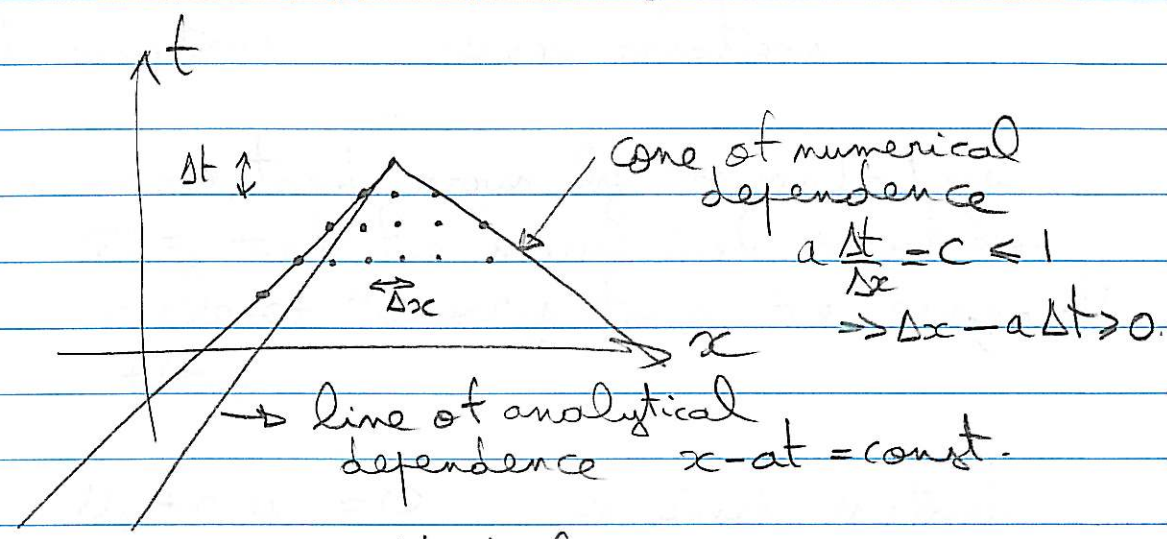 t
Δt
cone of numerical
dependence
a Δt/Δx = C ≤ 1
Δx
⇒ Δx - a Δt ≥ 0.
x
→ line of analytical
dependence x-at = const.